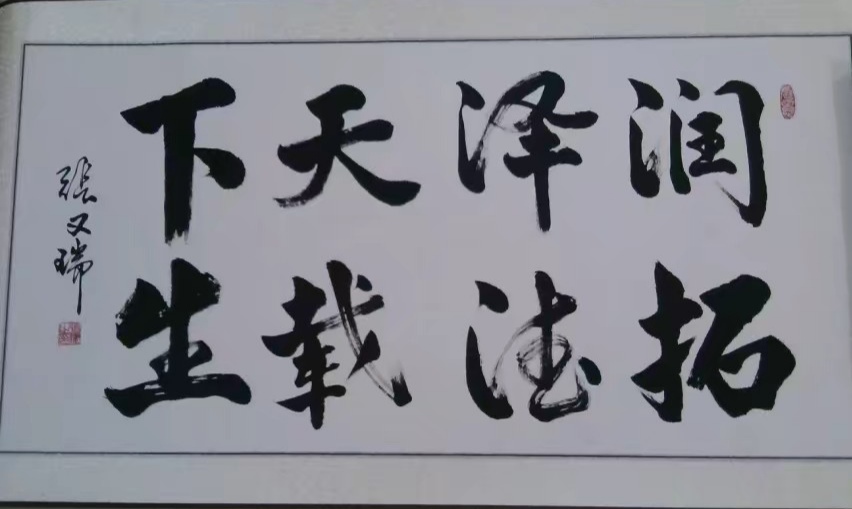 润泽天下
拓德载生
张又瑞